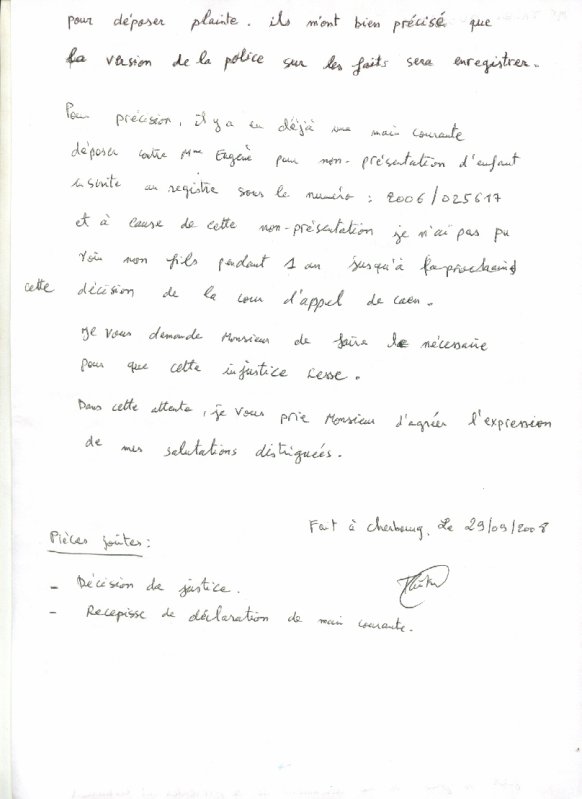 pour déposer plainte. ils m'ont bien précisé que
la version de la police sur les faits sera enregistrer.
Pour précision, il y a eu déjà une main courante
déposer contre Mme Eugène pour non-présentation d'enfant
inscrite au registre sous le numéro : 2006/025617
et à cause de cette non-présentation je n'ai pas pu
voir mon fils pendant 1 an jusqu'à la prochaine
cette décision de la cour d'appel de caen.
Je vous demande Monsieur de faire le nécessaire
pour que cette injustice cesse.
Dans cette attente, je vous prie Monsieur d'agréer l'expression
de mes salutations distinguées.
Fait à cherbourg, Le 29/09/2008
Pièces jointes :
- Décision de justice.
- Recepisse de déclaration de main courante.